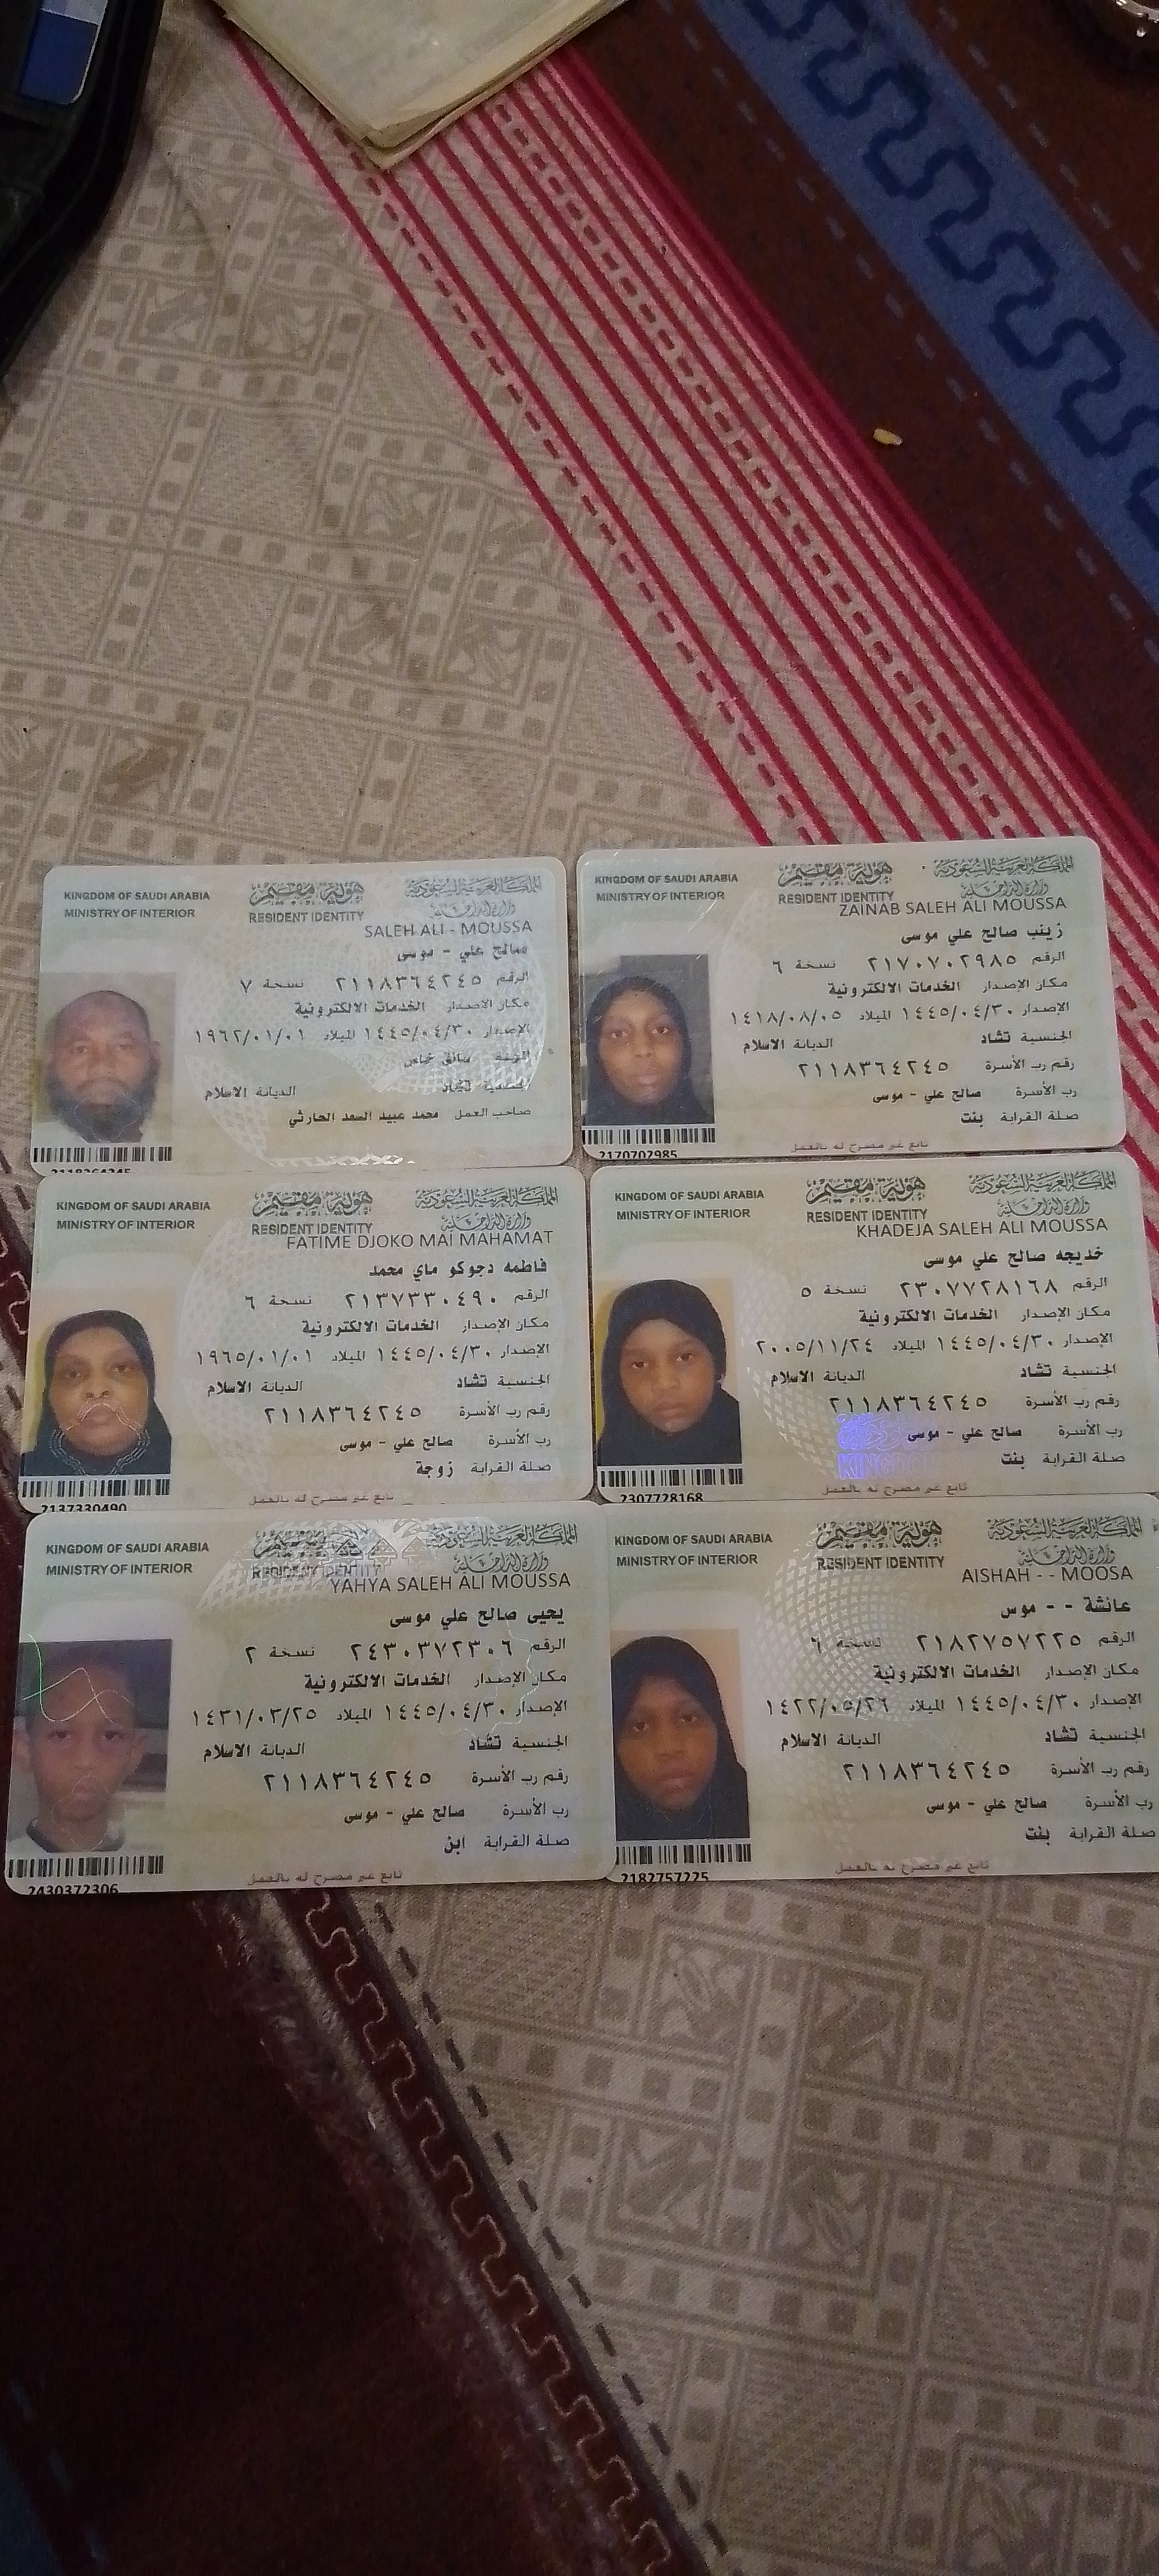 KINGDOM OF SAUDI ARABIA
MINISTRY OF INTERIOR
هوية مقيم
RESIDENT IDENTITY
المملكة العربية السعودية
وزارة الداخلية
SALEH ALI - MOUSSA
صالح علي - موسى
الرقم ٢١١٨٣٦٤٢٤٥ نسخة ٧
مكان الإصدار الخدمات الالكترونية
الإصدار ١٤٤٥/٠٤/٣٠ الميلاد ١٩٦٢/٠١/٠١
المهنة سائق خاص
الجنسية تشاد الديانة الاسلام
صاحب العمل محمد عبيد السعد الحارثي
KINGDOM OF SAUDI ARABIA
MINISTRY OF INTERIOR
هوية مقيم
RESIDENT IDENTITY
المملكة العربية السعودية
وزارة الداخلية
ZAINAB SALEH ALI MOUSSA
زينب صالح علي موسى
الرقم ٢١٧٠٧٠٢٩٨٥ نسخة ٦
مكان الإصدار الخدمات الالكترونية
الإصدار ١٤٤٥/٠٤/٣٠ الميلاد ١٤١٨/٠٨/٠٥
الجنسية تشاد الديانة الاسلام
رقم رب الأسرة ٢١١٨٣٦٤٢٤٥
رب الأسرة صالح علي - موسى
صلة القرابة بنت
2170702985
تابع غير مصرح له بالعمل
KINGDOM OF SAUDI ARABIA
MINISTRY OF INTERIOR
هوية مقيم
RESIDENT IDENTITY
المملكة العربية السعودية
وزارة الداخلية
FATIME DJOKO MAI MAHAMAT
فاطمه دجوكو ماي محمد
الرقم ٢١٣٧٣٣٠٤٩٠ نسخة ٦
مكان الإصدار الخدمات الالكترونية
الإصدار ١٤٤٥/٠٤/٣٠ الميلاد ١٩٦٥/٠١/٠١
الجنسية تشاد الديانة الاسلام
رقم رب الأسرة ٢١١٨٣٦٤٢٤٥
رب الأسرة صالح علي - موسى
صلة القرابة زوجة
2137330490
تابع غير مصرح له بالعمل
KINGDOM OF SAUDI ARABIA
MINISTRY OF INTERIOR
هوية مقيم
RESIDENT IDENTITY
المملكة العربية السعودية
وزارة الداخلية
KHADEJA SALEH ALI MOUSSA
خديجه صالح علي موسى
الرقم ٢٣٠٧٧٢٨١٦٨ نسخة ٥
مكان الإصدار الخدمات الالكترونية
الإصدار ١٤٤٥/٠٤/٣٠ الميلاد ٢٠٠٥/١١/٢٤
الجنسية تشاد الديانة الاسلام
رقم رب الأسرة ٢١١٨٣٦٤٢٤٥
رب الأسرة صالح علي - موسى
صلة القرابة بنت
2307728168
تابع غير مصرح له بالعمل
KINGDOM OF SAUDI ARABIA
MINISTRY OF INTERIOR
هوية مقيم
RESIDENT IDENTITY
المملكة العربية السعودية
وزارة الداخلية
YAHYA SALEH ALI MOUSSA
يحيى صالح علي موسى
الرقم ٢٤٣٠٣٧٢٣٠٦ نسخة ٢
مكان الإصدار الخدمات الالكترونية
الإصدار ١٤٤٥/٠٤/٣٠ الميلاد ١٤٣١/٠٣/٢٥
الجنسية تشاد الديانة الاسلام
رقم رب الأسرة ٢١١٨٣٦٤٢٤٥
رب الأسرة صالح علي - موسى
صلة القرابة ابن
2430372306
تابع غير مصرح له بالعمل
KINGDOM OF SAUDI ARABIA
MINISTRY OF INTERIOR
هوية مقيم
RESIDENT IDENTITY
المملكة العربية السعودية
وزارة الداخلية
AISHAH - - MOOSA
عائشة - - موس
الرقم ٢١٨٢٧٥٧٢٢٥ نسخة ٦
مكان الإصدار الخدمات الالكترونية
الإصدار ١٤٤٥/٠٤/٣٠ الميلاد ١٤٢٢/٠٥/٢٦
الجنسية تشاد الديانة الاسلام
رقم رب الأسرة ٢١١٨٣٦٤٢٤٥
رب الأسرة صالح علي - موسى
صلة القرابة بنت
2182757225
تابع غير مصرح له بالعمل